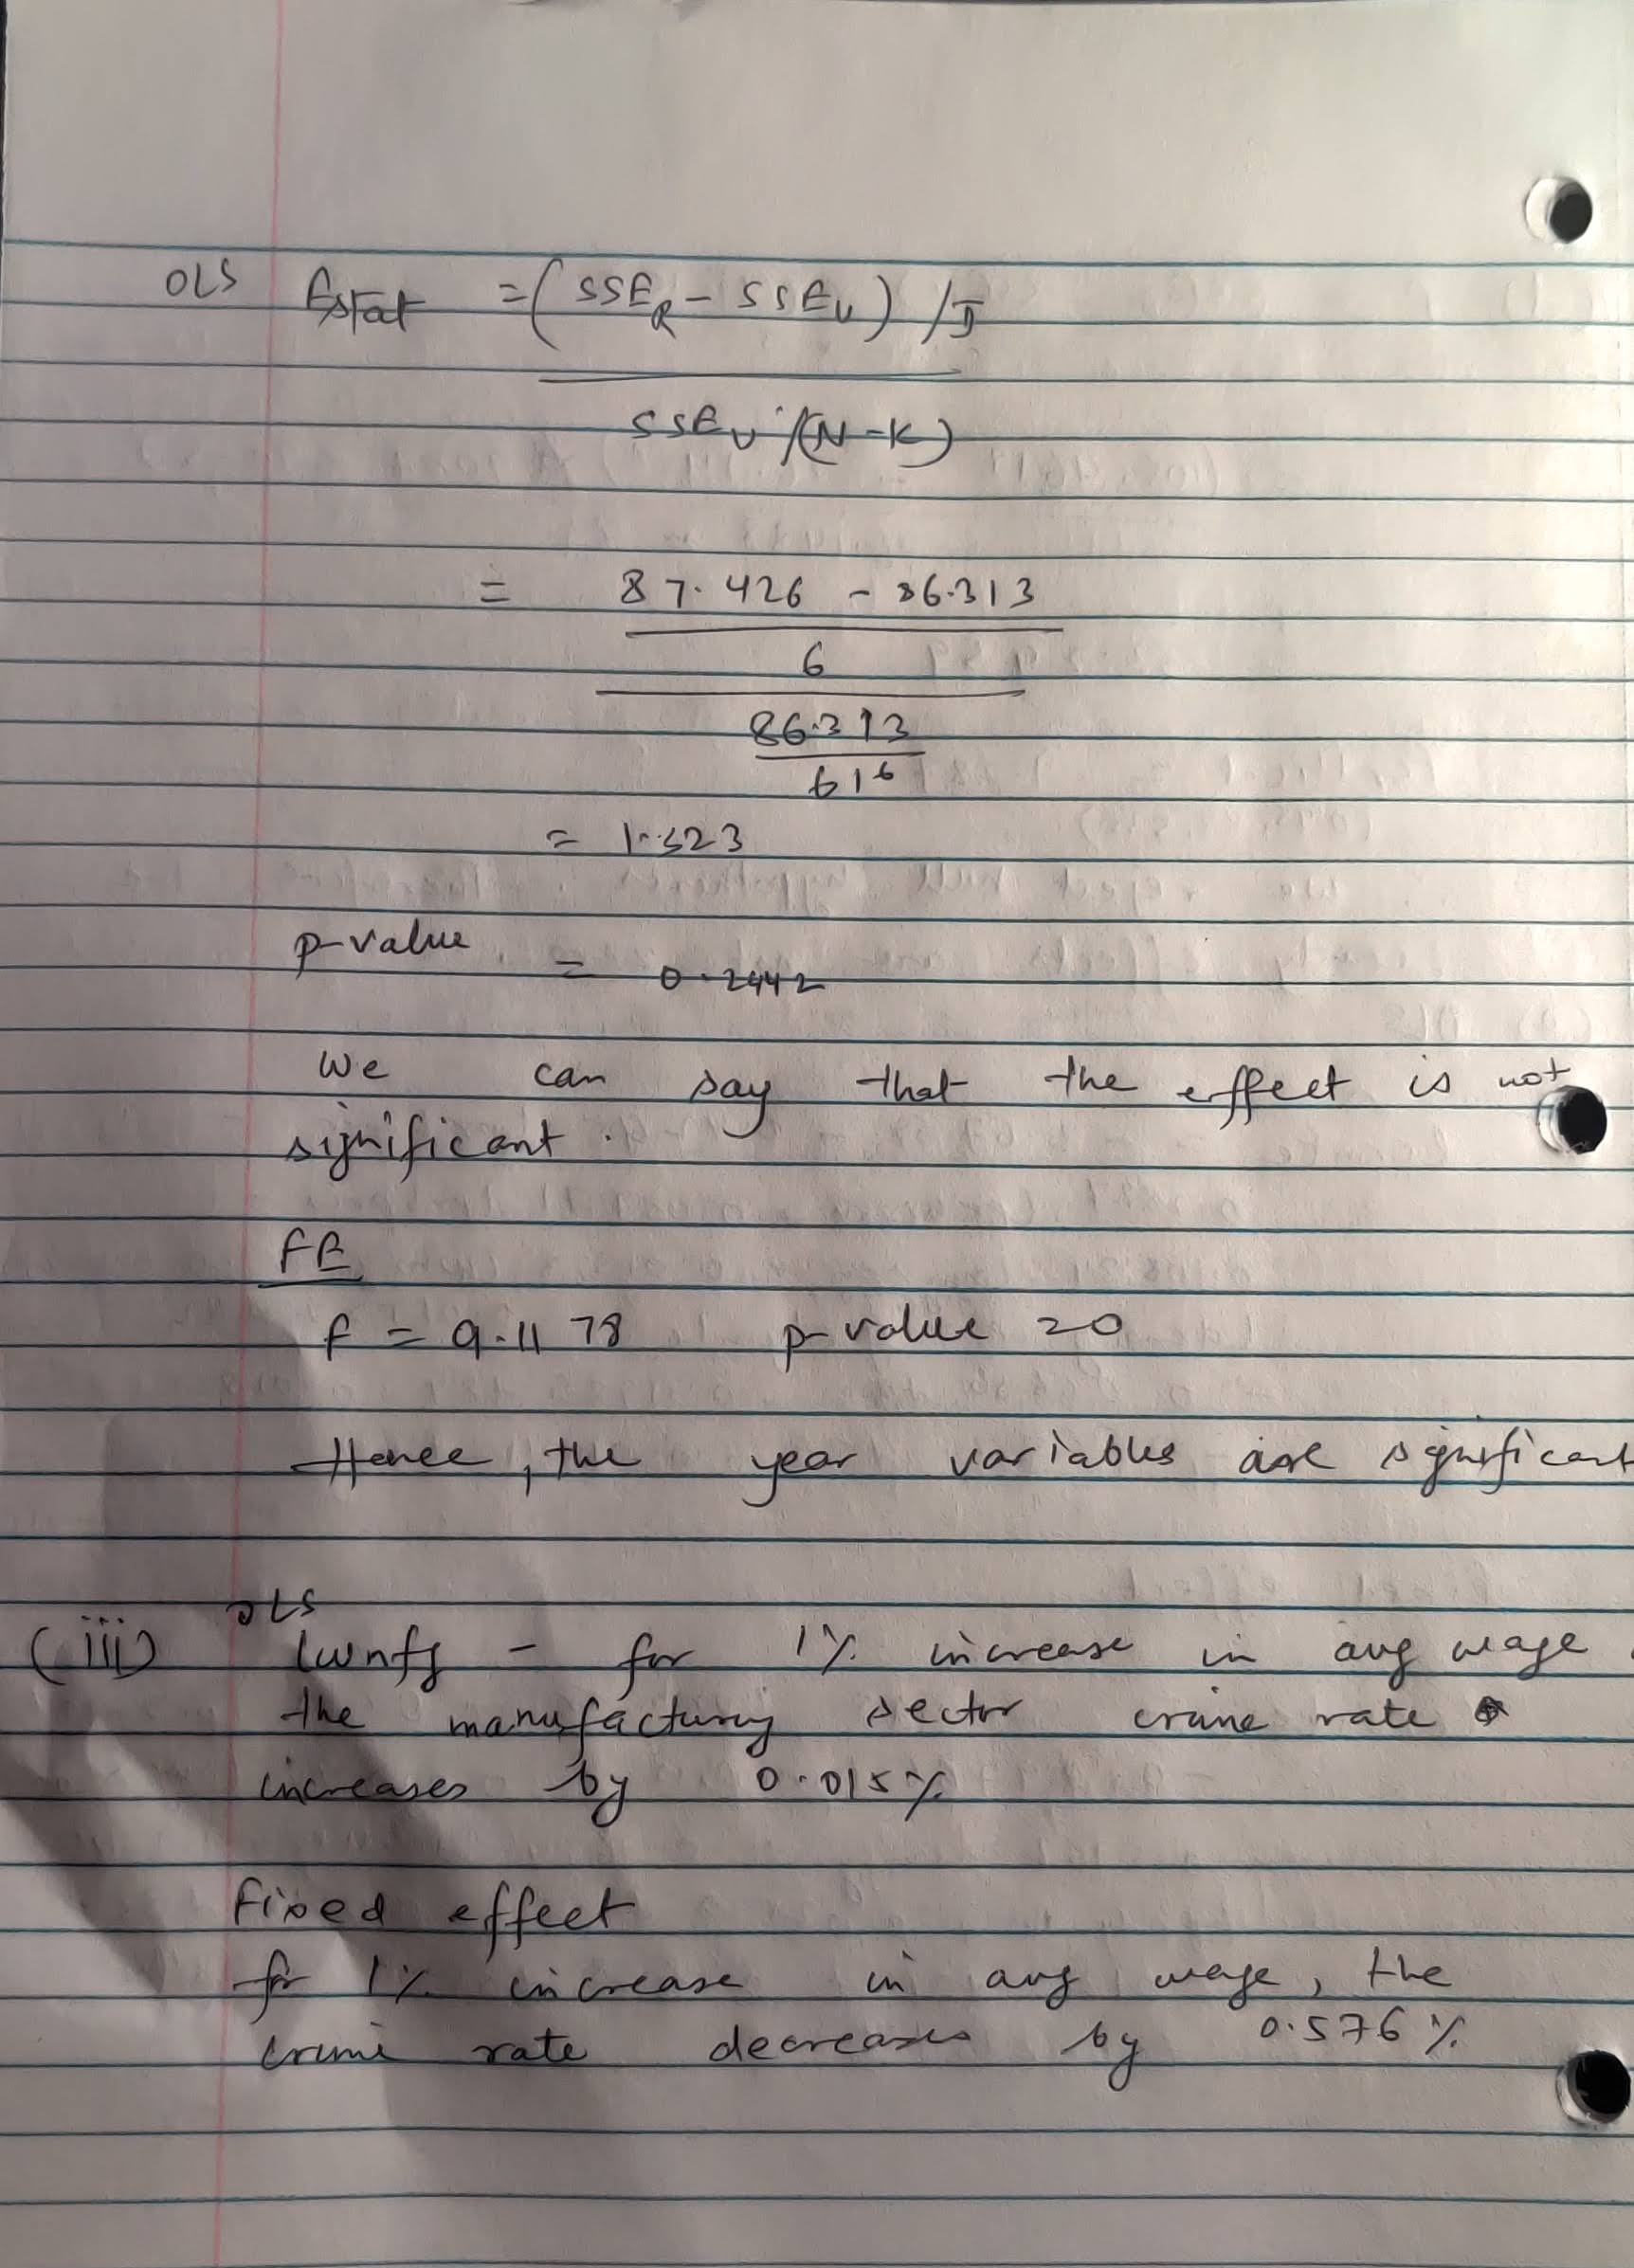 OLS Fstat = (SSE_R - SSE_U) /J
SSE_U /(N-K)
= 87.426 - 86.313
6
86.313
616
= 1.323
p-value = 0.2442
We can say that the effect is not
significant.
FE
F = 9.1178 p-value = 0
Hence, the year variables are significant
OLS
(iii) lwmfg - for 1% increase in avg wage
the manufacturing sector crime rate
increases by 0.015%
Fixed effect
for 1% increase in avg wage, the
crime rate decreases by 0.576%